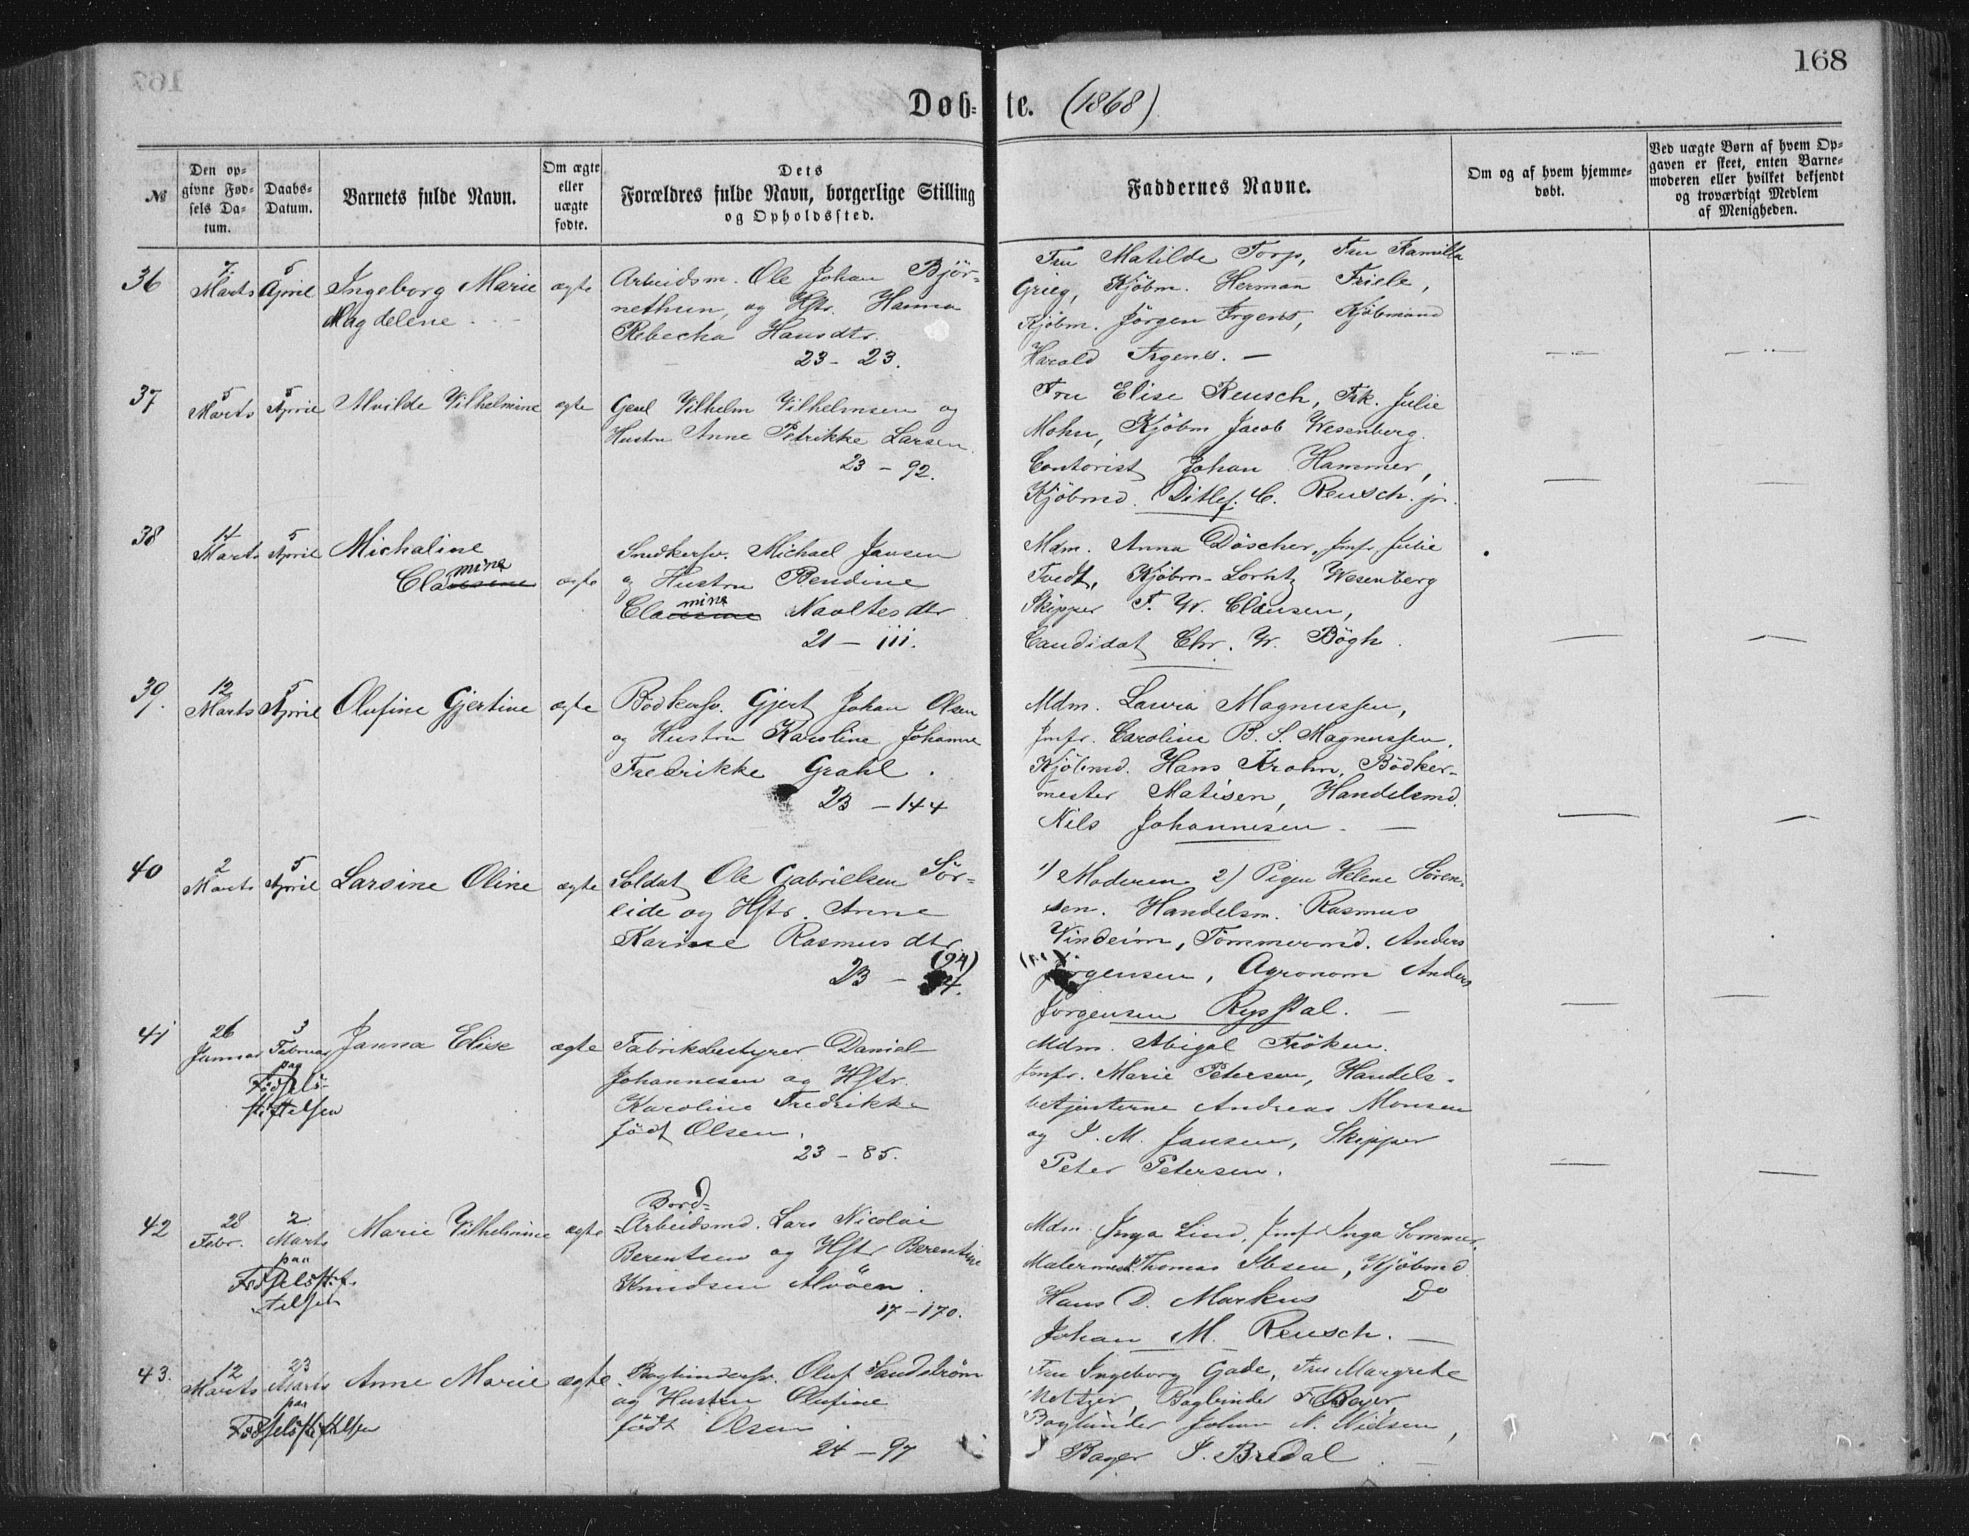 168
Døbte. (1868)
№
Den opgivne Fødsels Datum.
Daabs-Datum.
Barnets fulde Navn.
Om ægte eller uægte fødte.
Dets Forældres fulde Navn, borgerlige Stilling og Opholdssted.
Faddernes Navne.
Om og af hvem hjemmedøbt.
Ved uægte Børn af hvem Opgaven er skeet, enten Barnemoderen eller hvilket bekjendt og troværdigt Medlem af Menigheden.
36
7 Marts
5 April
Ingeborg Marie
Magdelene
ægte
Arbeidsm. Ole Johan Bjør-
nethun, og Hstr. Hanna
Rebecka Hansdtr.
23 - 23.
Fru Matilde Torp, Fru Kamilla
Grieg, Kjøbm. Herman Friele,
Kjøbm. Jörgen Irgens, Kjøbmand
Harald Irgens. —
37
5 Marts
5 April
Alvilde Vilhelmine
ægte
Vilhelm Vilhelmsen og
Hustru Anne Petrikke Larsen
23 - 92.
Fru Elise Reusch, Frk. Julie
Mohn, Kjöbm Jacob Wesenberg.
Contorist Johan Hammer,
Kjöbmd. Ditlef. C. Reusch. jr.
38
14 Marts
5 April
Michaline
Clausine mine
ægte
Snedkersv. Michael Jansen
og Hustru Bendine
Clausine mine Naoltesdtr
21 - 111.
Mdm. Anna Döscher, Jmfr Julie
Tvedt, Kjöbm. Lorntz Wesenberg
Skipper F. W. Clausen,
Candidat Chr. W. Bögh.
39.
12 Marts
5 April
Olufine Gjertine
ægte
Bödkersv. Gjert Johan Olsen
og Hustru Karoline Johanne
Fredrikke Grahl.
23 - 144
Mdm. Laura Magnussen,
Jmfr. Caroline B. S. Magnussen,
Kjöbmd. Hans Krohn, Bödker-
mester Matisen, Handelsmd.
Nils Johannesen. —
40
2 Marts
5 April
Larsine Oline
ægte
Soldat Ole Gabrielsen Sör-
eide og Hstr. Anne
Karine Rasmusdtr
(94)
23 -
1) Moderen 2) Pigen Helene Sören-
sen. Handelsm. Rasmus
Vindeim, Tömmermd. Anders
Jörgensen, Agronom Anders
Jörgensen Rysstal. —
41
26 Januar
3 Februar
paa
Födsels-
stiftelsen
Janna Elise
ægte
Fabrikbestyrer Daniel
Johannesen og Hstr.
Karoline Fredrikke
født Olsen.
23 - 85.
Mdm. Abigal Fröken.
Jmfr. Marie Petersen, Handels-
betjenterne Andreas Monsen
og J. M. Jansen, Skipper
Peter Petersen.
42
28 Febr.
2 Marts
paa
Födselsstif-
telsen
Marie Vilhelmine
ægte
Bord-
Arbeidsmd. Lars Nicolai
Berentsen og Hstr Berentine
Knudsen Alvöen.
17 - 170.
Mdm. Inga Lind, Jmfr Inga Sommer,
Malermest. Thomas Ibsen, Kjöbmd
Hans D. Markus Do
Johan M. Reusch. —
43.
12 Marts
23 Marts
paa
Födselsstiftelsen
Anne Marie
ægte
Bogbindersv. Oluf Sandström
og Hustru Olufine
født Olsen
24 - 97
Fru Ingeborg Gade, Fru Margrete
Meltzer, Bogbinder F. Beyer,
Bogbinder Johan N. Nielsen,
Bager J. Bredal. —